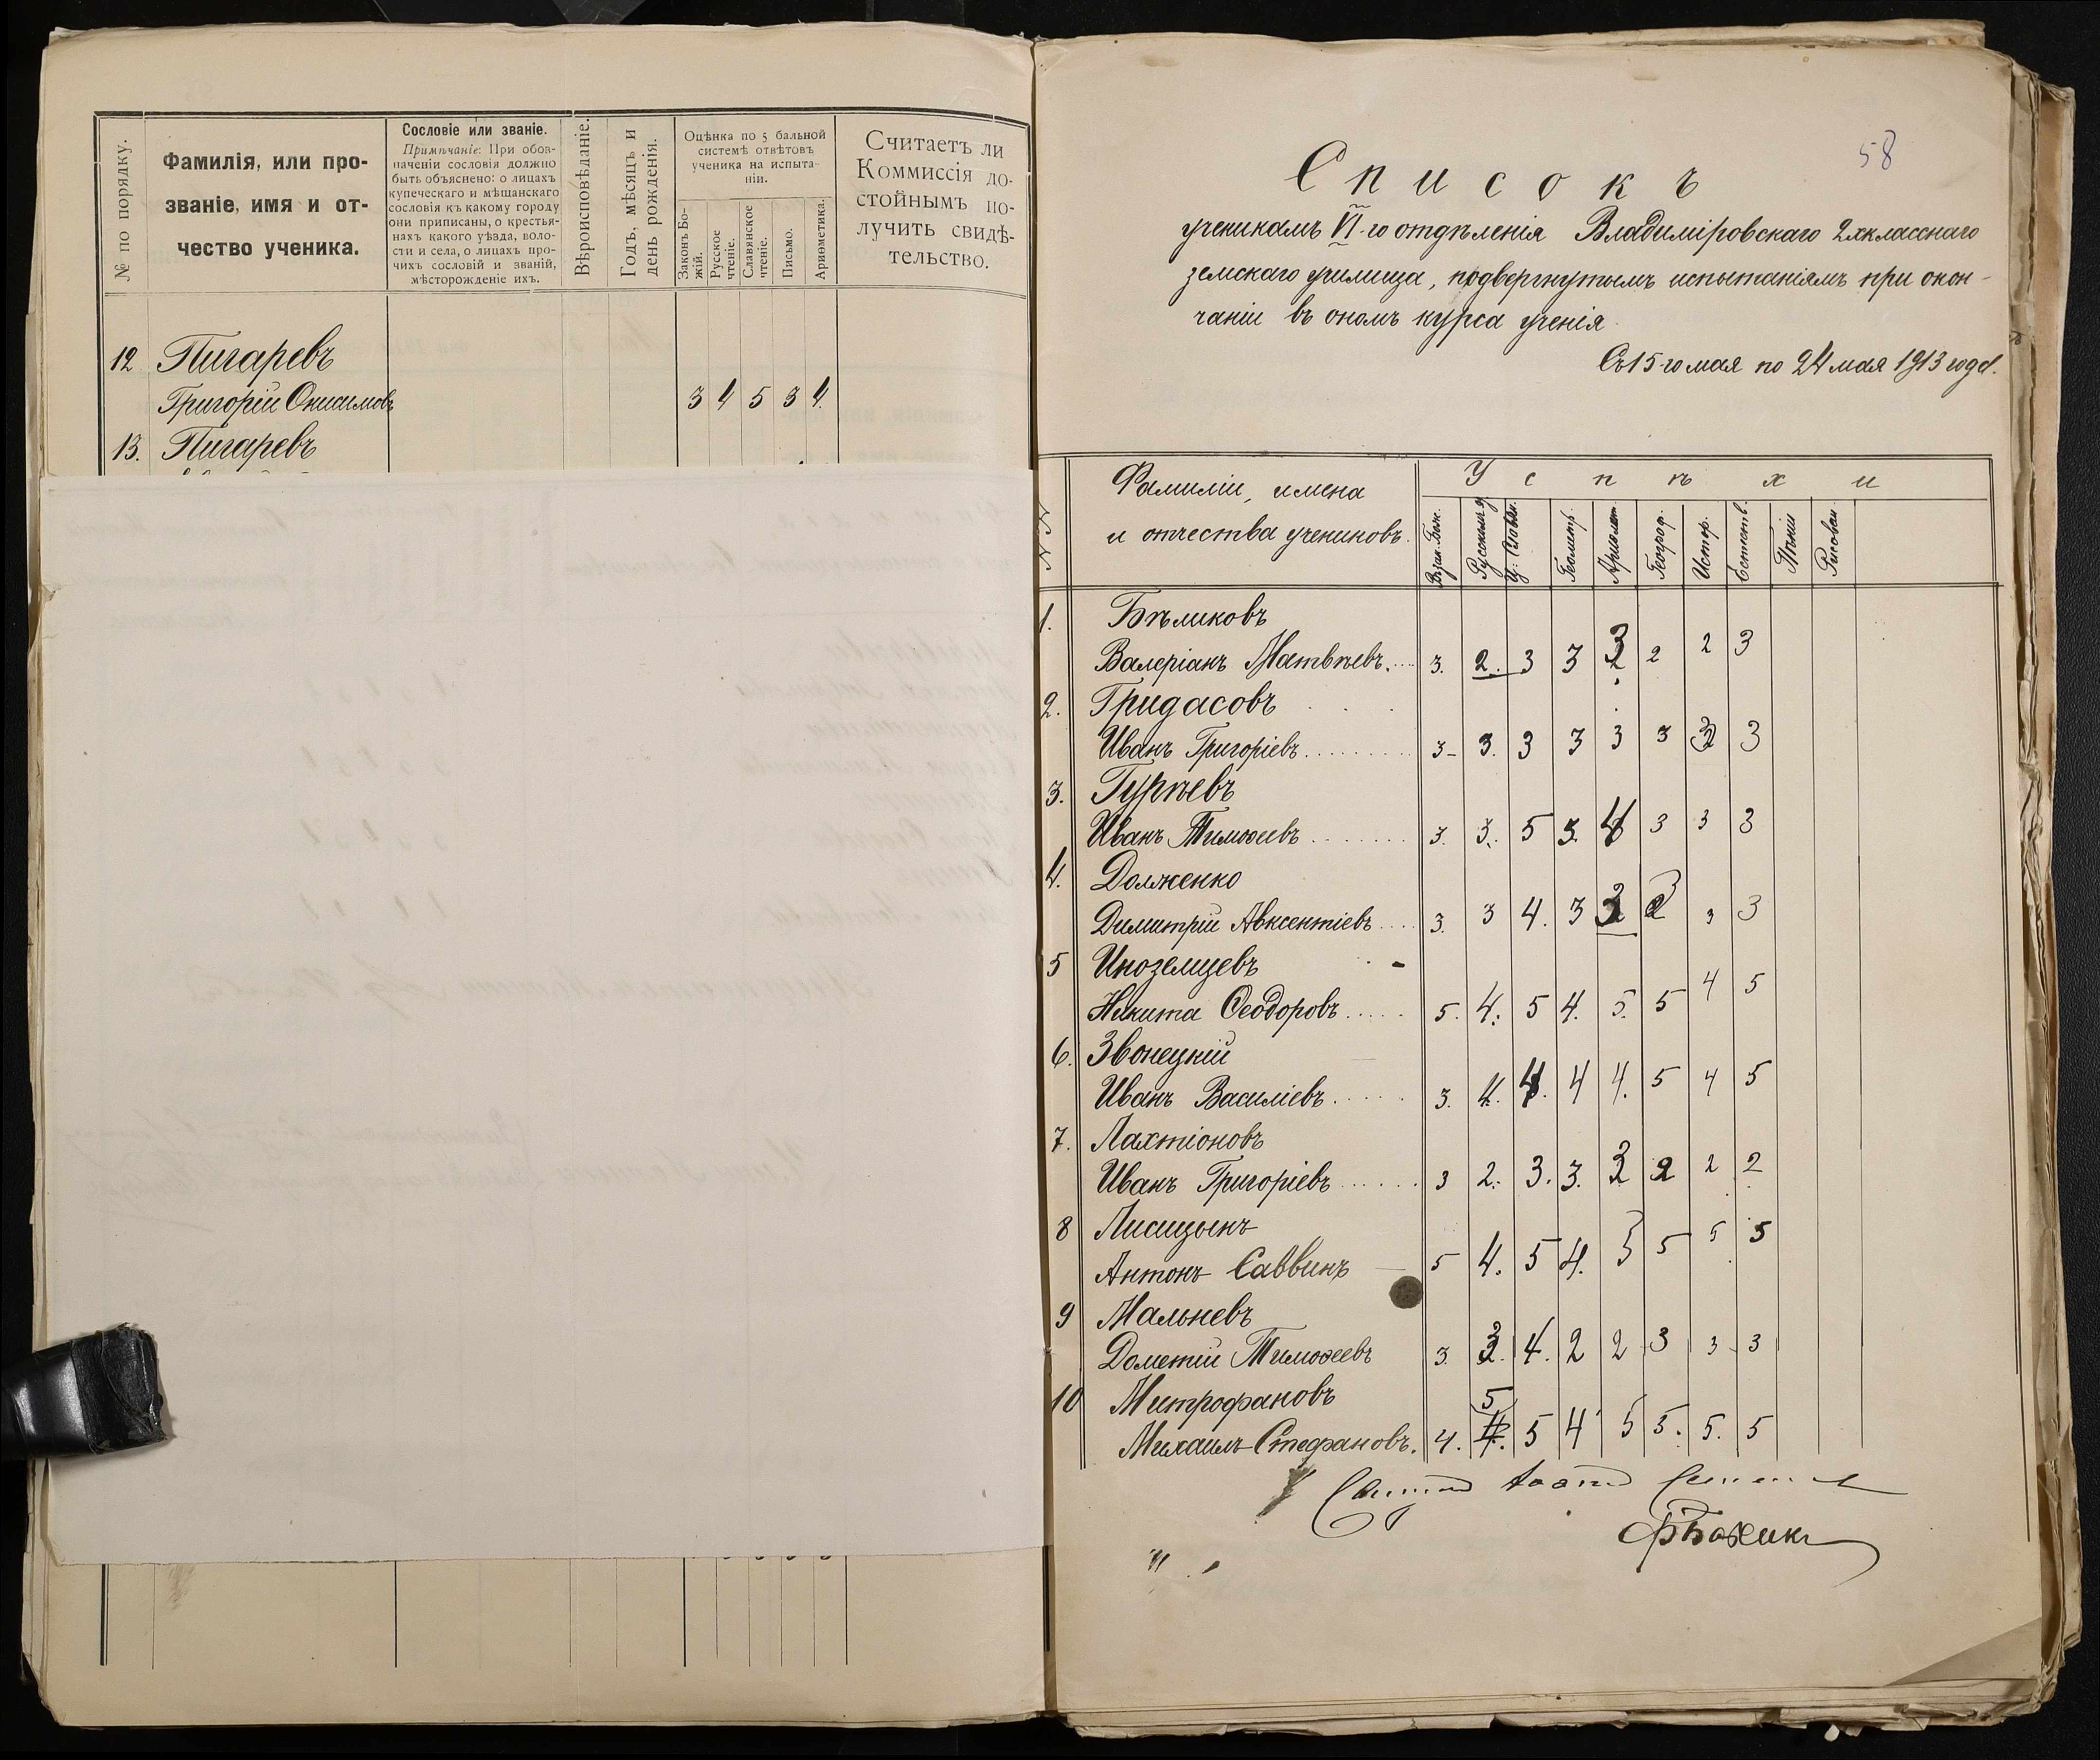 № по порядку.
Фамилія, или про-
званіе, имя и от-
чество ученика.
Сословіе или званіе.
Примѣчаніе: При обоз-
наченіи сословія должно
быть объяснено: о лицахъ
купеческаго и мѣшанскаго
сословія къ какому городу
они приписаны, о крестья-
нахъ какого уѣзда, воло-
сти и села, о лицахъ про-
чихъ сословій и званій,
мѣсторожденіе ихъ.
Вѣроисповѣданіе.
Годъ, мѣсяцъ и
день рожденія.
Оцѣнка по 5 бальной
системѣ отвѣтовъ
ученика на испыта-
ніи.
Законъ Бо-
жій.
Русское
чтеніе.
Славянское
чтеніе.
Письмо.
Ариѳметика.
Считаетъ ли
Коммиссія до-
стойнымъ по-
лучить свидѣ-
тельство.
12 Пигаревъ
Григорій Онисимовъ 3 4 5 3 4.
13. Пигаревъ
58
Списокъ
ученикамъ VI-го отдѣленія Владиміровскаго 2хкласснаго
земскаго училища, подвергнутымъ испытаніямъ при окон-
чаніи въ ономъ курса ученія
Съ 15-го мая по 24 мая 1913 года.
N N
Фамиліи, имена
и отчества учениковъ.
Успѣхи
Геометр.
Географ.
Истор.
Естеств.
Пѣніе
Рисован.
1. Бѣликовъ
Валеріанъ Матвѣевъ. 3. 2. 3 3 3 2 2 3
2. Гридасовъ
Иванъ Григоріевъ 3- 3. 3 3 3 3 3 3
3. Гурѣевъ
Иванъ Тимоѳеевъ 3. 3. 5 3. 4 3 3 3
4. Долженко
Димитрій Авксентіевъ 3. 3 4. 3 3 3 3
5 Иноземцевъ
Никита Ѳеодоровъ 5. 4. 5 4. 5. 5 4 5
6. Звонецкій
Иванъ Василіевъ 3. 4. 4. 4 4. 5 4 5
7. Лахтіоновъ
Иванъ Григоріевъ 3 2. 3. 3. 3 2 2 2
8 Лисицынъ
Антонъ Саввинъ 5 4. 5 4. 5 5 5 5
9 Мальневъ
Дометій Тимоѳеевъ 3. 3. 4. 2 2 3 3 3
10 Митрофановъ
5
Михаилъ Стефановъ. 4. 4. 5 4 5 5. 5. 5